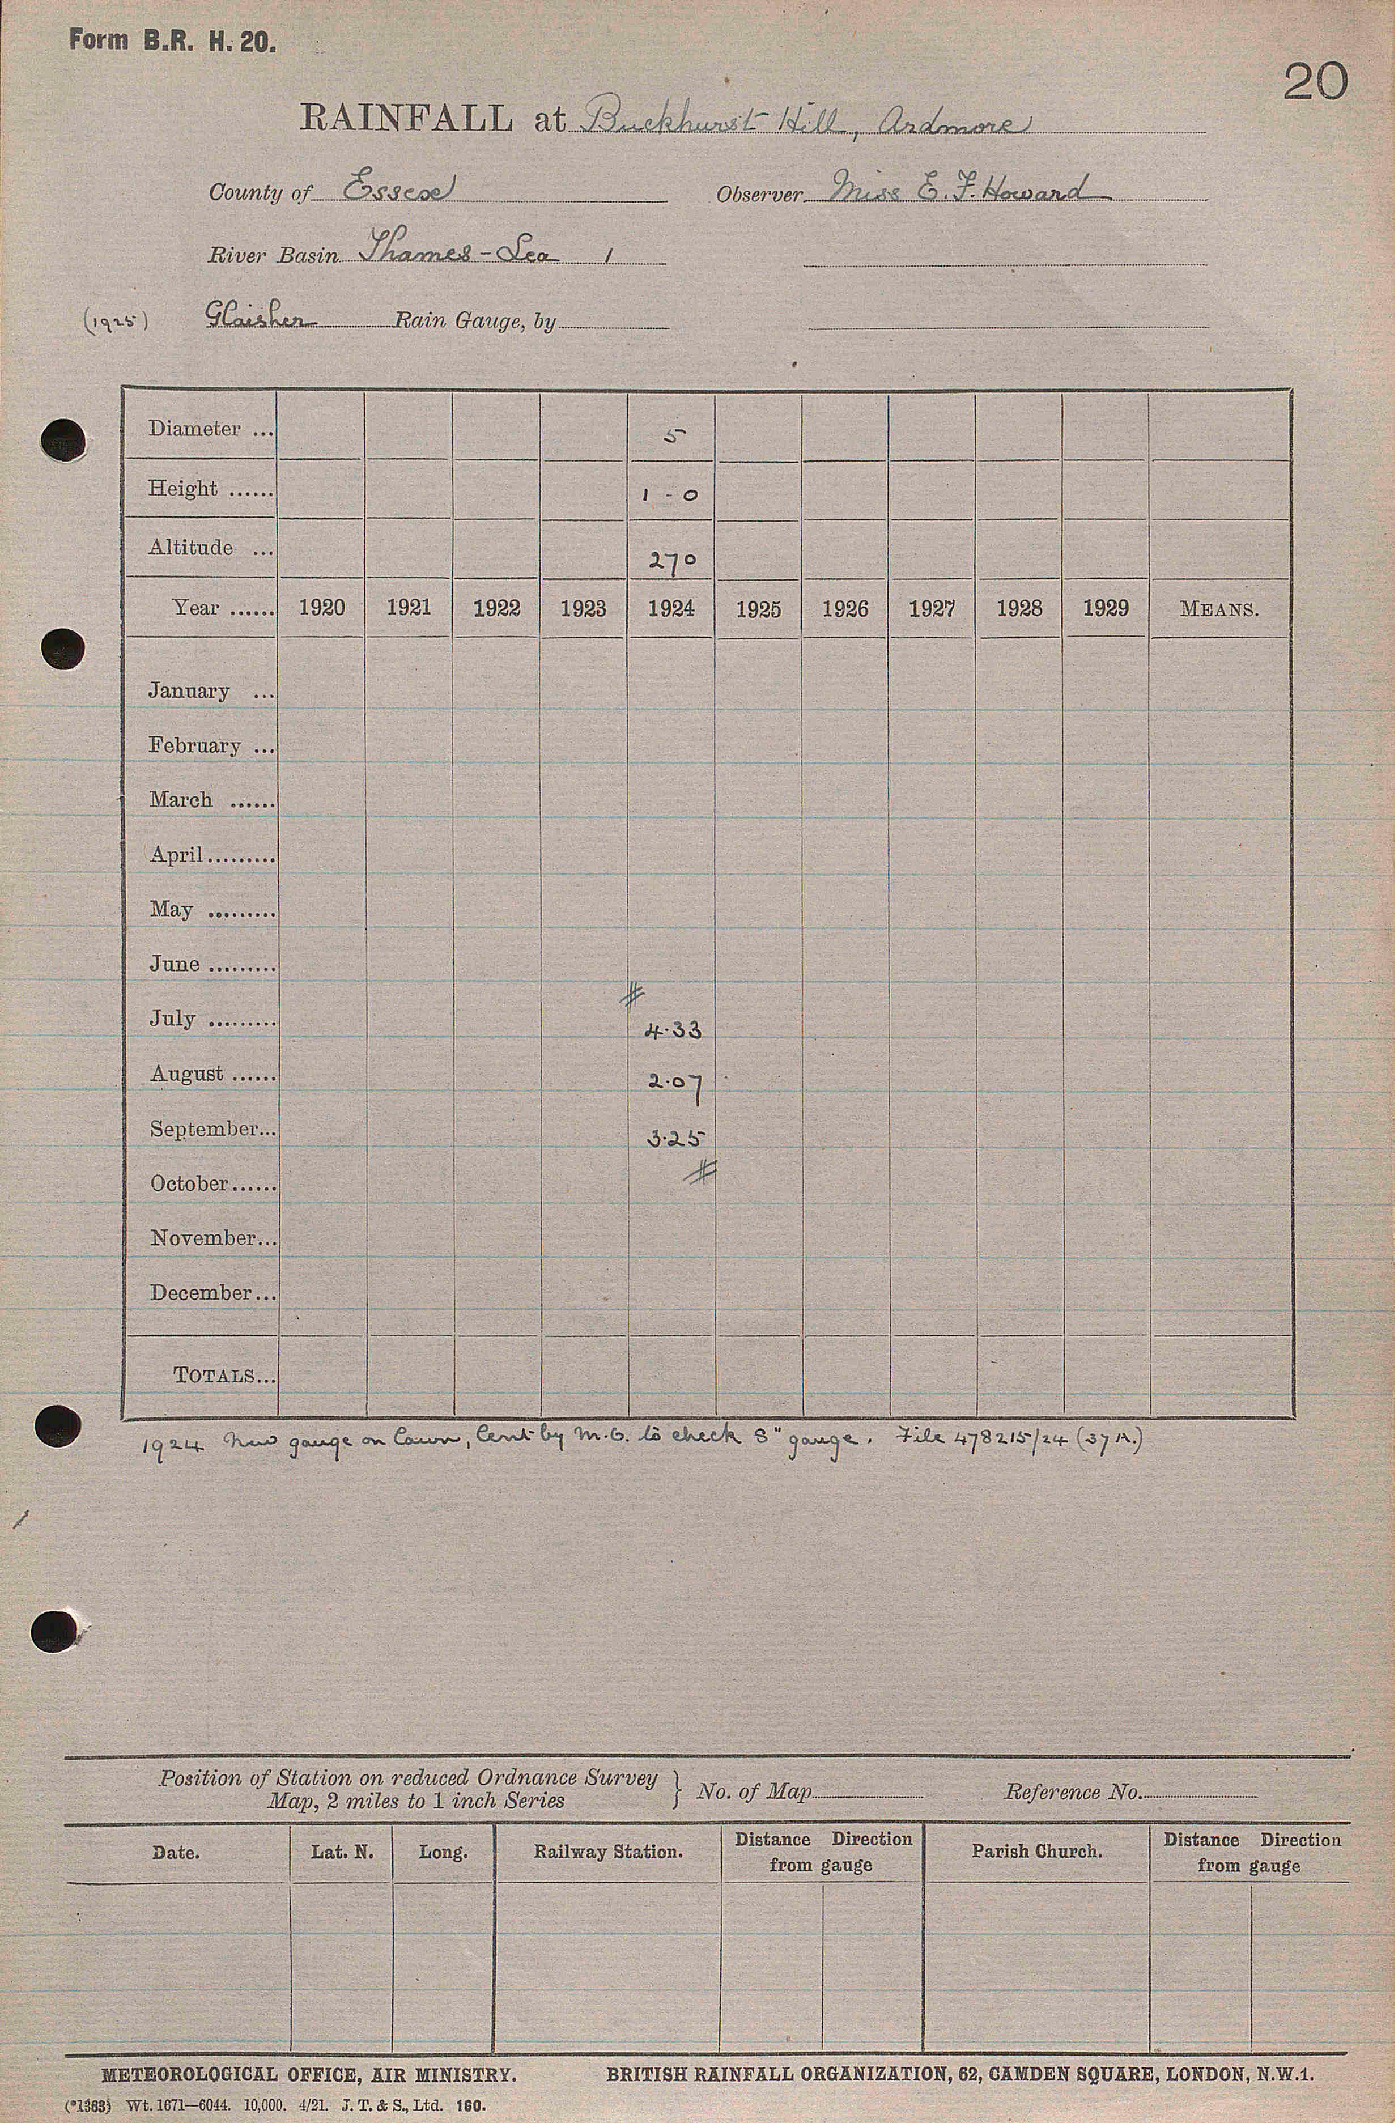 Form B.R. H. 20.
20
RAINFALL at Buckhurst Hill, Ardmore
County of Essex Observer Miss E. F. Howard
River Basin Thames - Lea 1
(1925) Glaisher Rain Gauge, by
Diameter ... 5
Height ...... 1 - 0
Altitude ... 270
Year ...... 1920 1921 1922 1923 1924 1925 1926 1927 1928 1929 MEANS.
January ...
February ...
March ......
April.........
May .........
June .........
#
July ......... 4.33
August ...... 2.07
September... 3.25
#
October......
November...
December...
TOTALS...
1924 New gauge on lawn, lent by M.O. to check 8" gauge. File 478215/24 (37A.)
Position of Station on reduced Ordnance Survey Map, 2 miles to 1 inch Series } No. of Map Reference No.
Date. Lat. N. Long. Railway Station. Distance Direction from gauge Parish Church. Distance Direction from gauge
METEOROLOGICAL OFFICE, AIR MINISTRY. BRITISH RAINFALL ORGANIZATION, 62, CAMDEN SQUARE, LONDON, N.W.1.
(*1383) Wt. 1671—6044. 10,000. 4/21. J. T. & S., Ltd. 160.